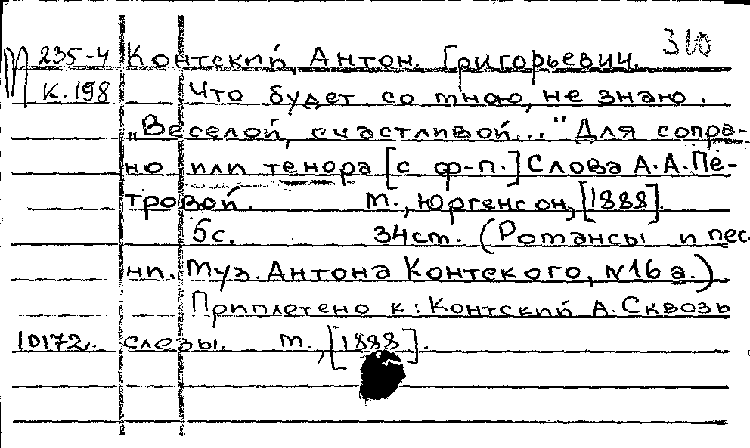 310
М 235-4 Контский, Антон Григорьевич.
К.198 Что будет со мною, не знаю.
„Веселой, счастливой..." Для сопра-
но или тенора [с ф-п.] Слова А.А.Пе-
тровой. М., Юргенсон, [1888].
5с. 34см. (Романсы и пес
ни. Муз. Антона Контского, №16а.)
Приплетено к: Контский А. Сквозь
10172. слезы. М., [1888].